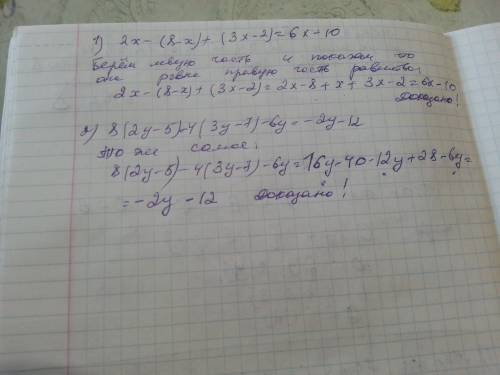 1) 2x - (8-x) + (3x-2) = 6x - 10
Берём левую часть и покажем что
она равна правую часть равенства,
2x - (8-x) + (3x-2) = 2x - 8 + x + 3x - 2 = 6x - 10
Доказано!
2) 8(2y-5) - 4(3y-7) - 6y = -2y - 12
то же самое.
8(2y-5) - 4(3y-7) - 6y = 16y - 40 - 12y + 28 - 6y =
= -2y - 12 Доказано!